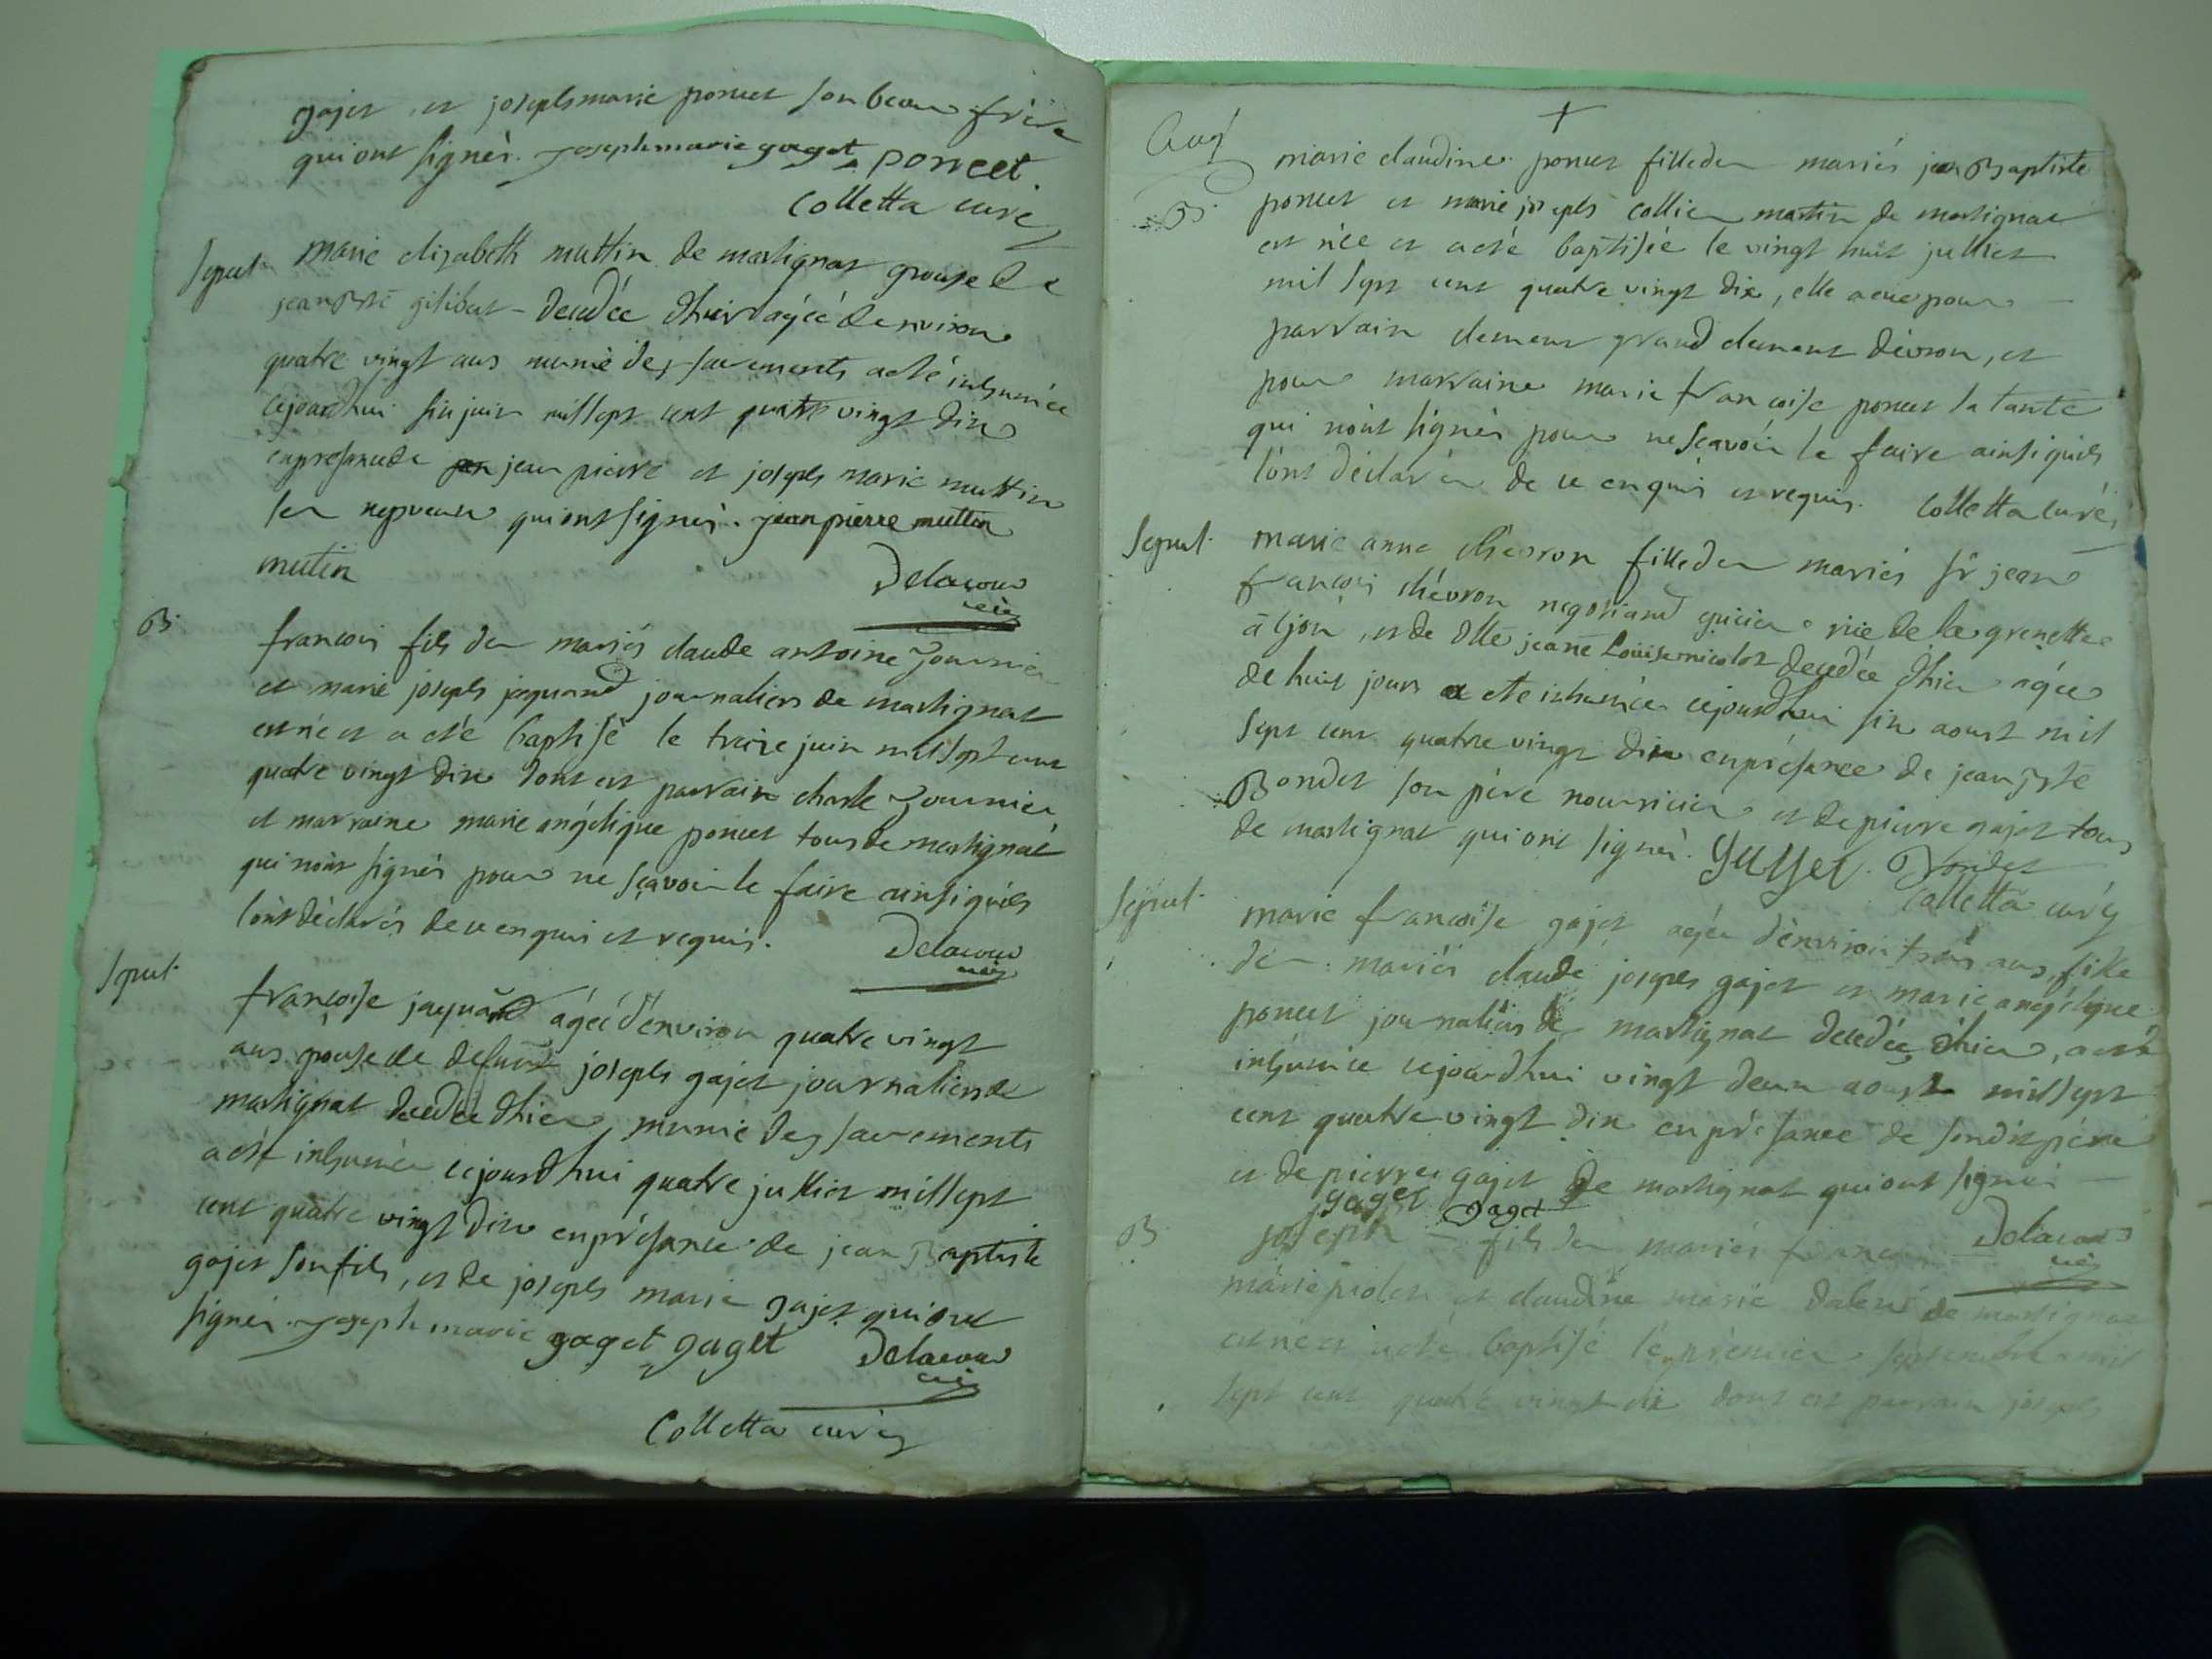 gajet et joseph marie poncet son beau frère
qui ont signés. Joseph marie gaget poncet.
Colletta curé
Sepult. marie elizabeth muttin de martignat epouse de
jean Bte gilibert - decedée d'hier agée denviron
quatre vingt ans munie des sacrements a eté inhumée
cejourdhui six juin mil sept cent quatre vingt dix
en presence de jean pierre et joseph marie muttin
ses nepveux qui ont signés. Jean pierre muttin
mutin Delacour
B. francois fils des mariés claude antoine Journier
et marie joseph jaquand journaliers de martignat
est né et a eté baptisé le treize juin mil sept cent
quatre vingt dix dont est parrain charle Journier
et marraine marie angélique poncet tous de martignat
qui n'ont signés pour ne sçavoir le faire ainsi qu'ils
l'ont déclarés de ce enquis et requis. Delacour
Sepult. francoise jaquand agée d'environ quatre vingt
ans epouse de defunt joseph gajet journalier de
martignat decedée d'hier, munie des sacrements
a eté inhumée cejourdhui quatre julliet mil sept
cent quatre vingt dix en présance de jean Baptiste
gajet son fils, et de joseph marie gajet qui ont
signés. Joseph marie gaget gaget Delacour
Colletta curé
marie claudine poncet fille des mariés jean Baptiste
B. poncet et marie joseph collier martin de martignat
est née et a eté baptisée le vingt huit julliet
mil sept cent quatre vingt dix, elle a eue pour
parrain clement grand clement d'evron, et
pour marraine marie francoise poncet sa tante
qui n'ont signés pour ne scavoir le faire ainsi qu'ils
l'ont déclarés de ce enquis et requis. Colletta curé
Sepult. marie anne chévron fille des mariés sr jean
francois chévron negotiand epicier rüe de la grenette
a lyon, et de dlle jeane Louise nicolot decedée d'hier agée
de huit jours a eté inhumée cejourdhui six aoust mil
sept cent quatre vingt dix en présance de jean Bte
Bondet son père nourricier et de pierre gajet tous
de martignat qui ont signés. Bondet
Colletta curé
Sepult. marie francoise gajet agée d'environ trois ans, fille
des mariés claude joseph gajet et marie angélique
poncet journaliers de martignat decedée d'hier, a eté
inhumée cejourdhui vingt deux aoust mil sept
cent quatre vingt dix en présance de sondit père
et de pierre gajet de martignat qui ont signés
gaget gaget Delacour
B. joseph fils des mariés francois
marie et claudine marie de martignat
est né et a eté baptisé le prémier septembre mil
sept cent quatre vingt dix dont est parrain joseph